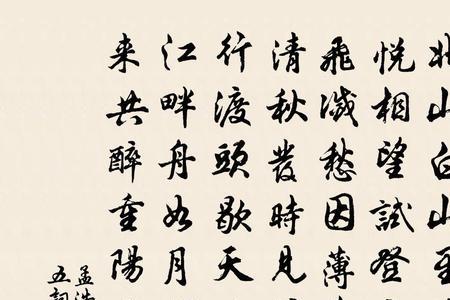 北山白
悦相望試登
飛滅愁因薄
清秋發時見
行渡頭歇天
江畔舟如月
来共醉重陽
孟浩
五